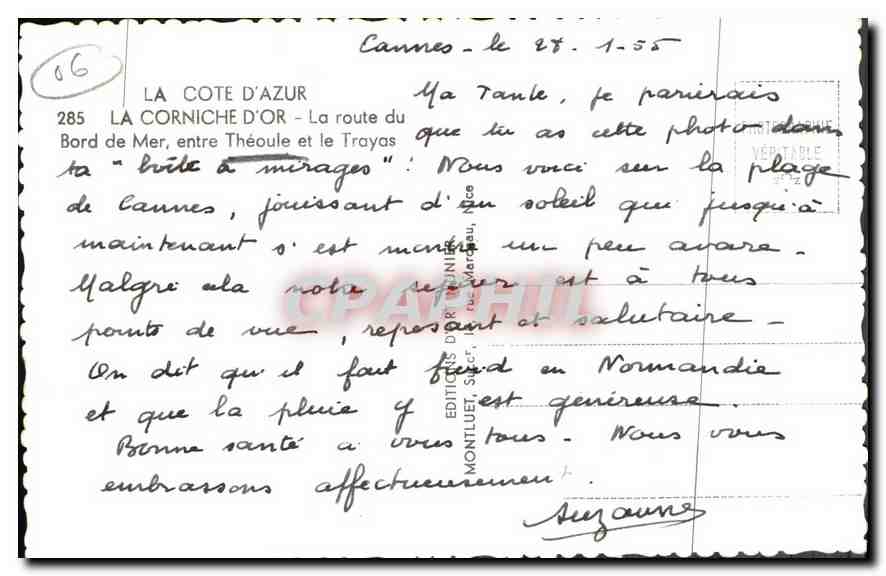 Cannes - le 27. 1-55
06
LA COTE D'AZUR
285 LA CORNICHE D'OR - La route du
Bord de Mer, entre Théoule et le Trayas
Ma Tante, je parierais
que tu as cette photo dans
ta "boîte à mirages"! Nous voici sur la plage
de Cannes, jouissant d'un soleil qui jusqu'à
maintenant s'est montré un peu avare.
Malgré cela notre séjour est à tous
points de vue, reposant et salutaire -
On dit qu'il fait froid en Normandie
et que la pluie y est généreuse.
Bonne santé à vous tous. Nous vous
embrassons affectueusement.
Suzanne
EDITIONS D'ART MUNIER
MONTLUET, Succr, rue Marceau, Nice
VÉRITABLE
CPAPHIL